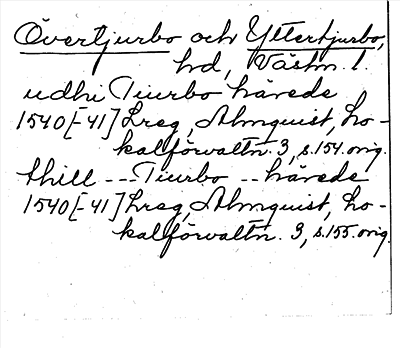 Övertjurbo och Yttertjurbo,
hd, Västm. l.
udhi Tiurbo härede
1540[-41] Lreg, Almquist, Lo-
kalförvaltn. 3, s. 154. orig.
thill -- Tiurbo -- härede
1540[-41] Lreg, Almquist, Lo-
kalförvaltn. 3, s. 155. orig.